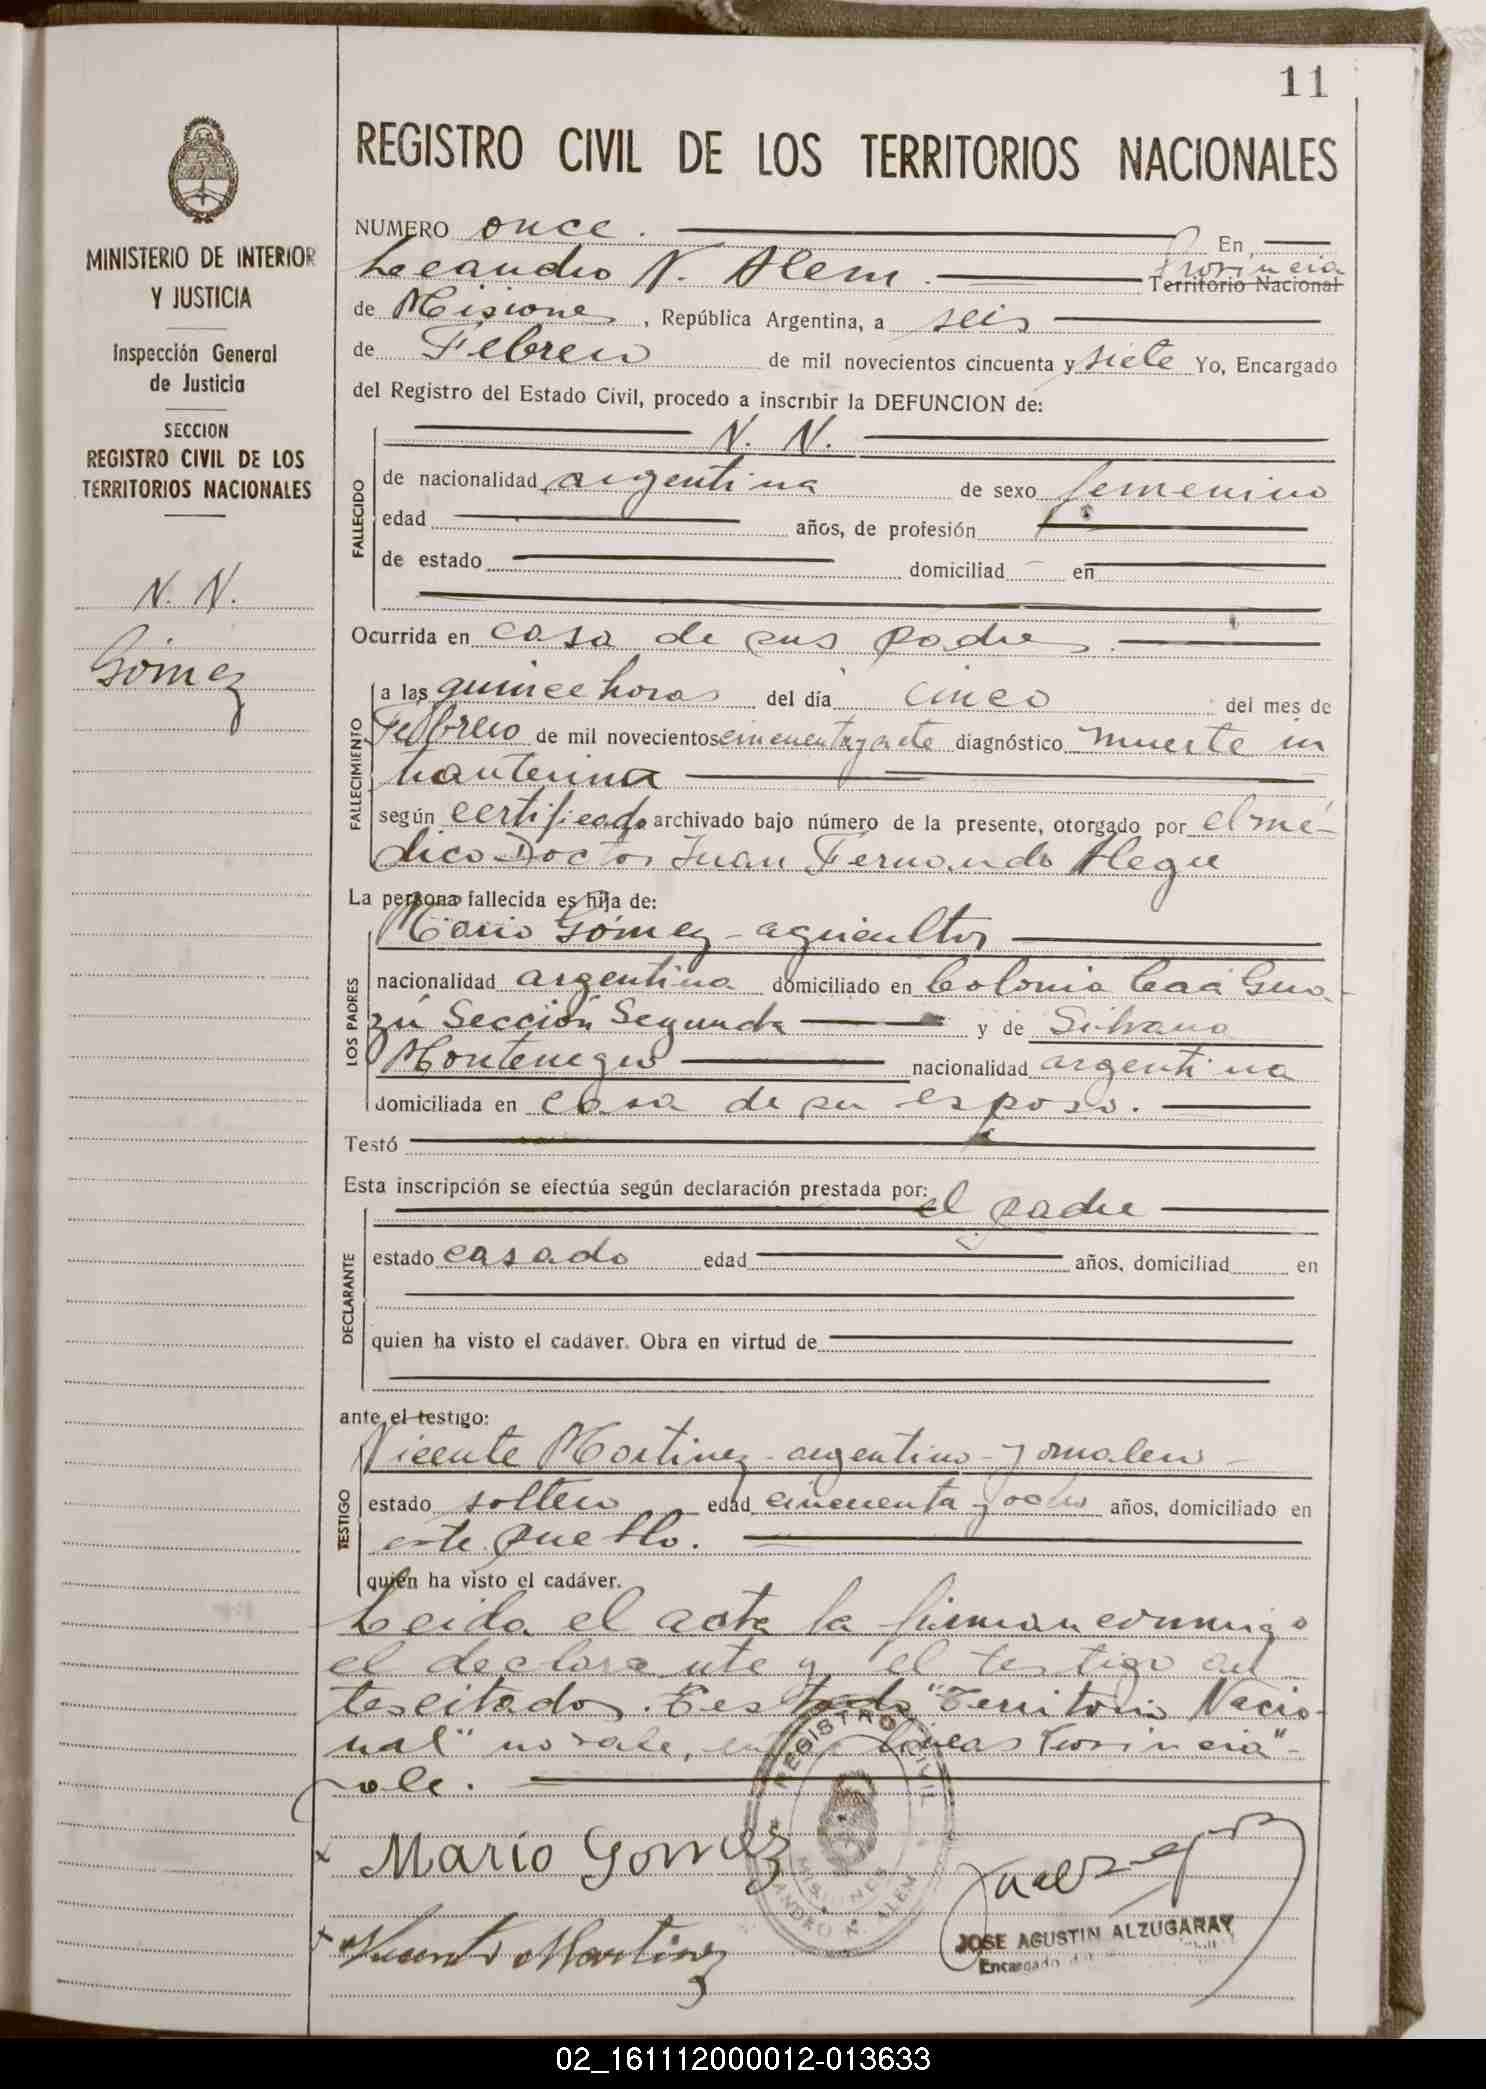 11
REGISTRO CIVIL DE LOS TERRITORIOS NACIONALES
MINISTERIO DE INTERIOR
Y JUSTICIA
Inspección General
de Justicia
SECCION
REGISTRO CIVIL DE LOS
TERRITORIOS NACIONALES
N. N.
Gómez
NUMERO once. En
Leandro N. Alem. Provincia
Territorio Nacional
de Misiones, República Argentina, a seis
de Febrero de mil novecientos cincuenta y siete Yo, Encargado
del Registro del Estado Civil, procedo a inscribir la DEFUNCION de:
N. N.
FALLECIDO
de nacionalidad argentina de sexo femenino
edad años, de profesión
de estado domiciliad en
Ocurrida en casa de sus padres.
FALLECIMIENTO
a las quince horas del día cinco del mes de
Febrero de mil novecientos cincuentaysiete diagnóstico muerte in
trauterina
según certificado archivado bajo número de la presente, otorgado por el mé-
dico Doctor Juan Fernando Alegre
La persona fallecida es hija de:
LOS PADRES
Mario Gómez - agricultor
nacionalidad argentina domiciliado en Colonia Caá Gua-
zú Sección Segunda y de Silvana
Montenegro nacionalidad argentina
domiciliada en casa de su esposo.
Testó
Esta inscripción se efectúa según declaración prestada por:
el padre
DECLARANTE
estado casado edad años, domiciliad en
quien ha visto el cadáver. Obra en virtud de
ante el testigo:
TESTIGO
Vicente Martinez - argentino - jornalero -
estado soltero edad cincuenta y ocho años, domiciliado en
este pueblo.
quien ha visto el cadáver.
Leida el acta la firman conmigo
el declarante y el testigo an
tescitados. Testado "Territorio Nacio-
nal" no vale, lineas Provincia"-
vale.
REGISTRO CIVIL
MISIONES
LEANDRO N. ALEM
x Mario Gomez
x Vicente Martinez
JOSE AGUSTIN ALZUGARAY
Encargado
02_161112000012-013633